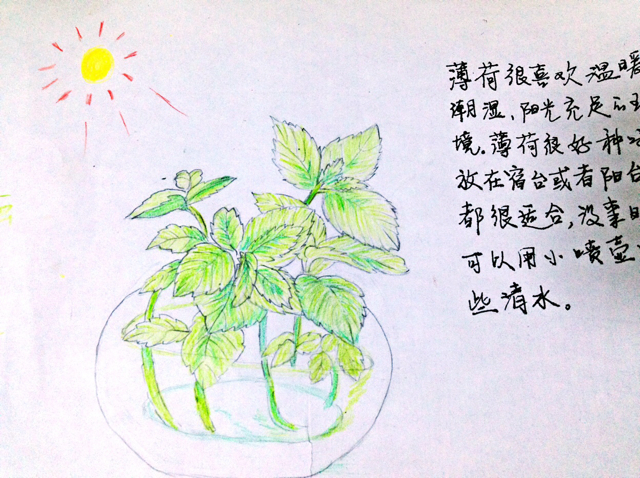 薄荷很喜欢温暖
潮湿、阳光充足的
境。薄荷很好种
放在窗台或者阳台
都很适合,没事
可以用小喷壶
些清水。